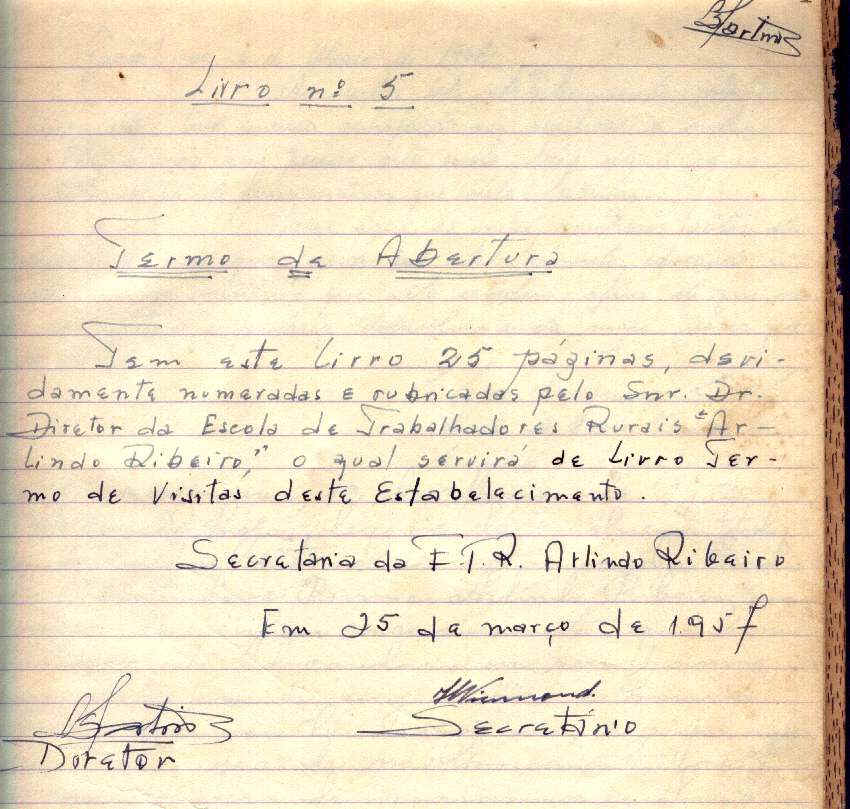 Livro nº 5
Termo de Abertura
Tem este Livro 25 páginas, devi-
damente numeradas e rubricadas pelo Snr. Dr.
Diretor da Escola de Trabalhadores Rurais "Ar-
lindo Ribeiro," o qual servirá de Livro Ter-
mo de Visitas deste Estabelecimento.
Secretaria da E.T.R. Arlindo Ribeiro
Em 25 de março de 1.957
Secretário
Diretor